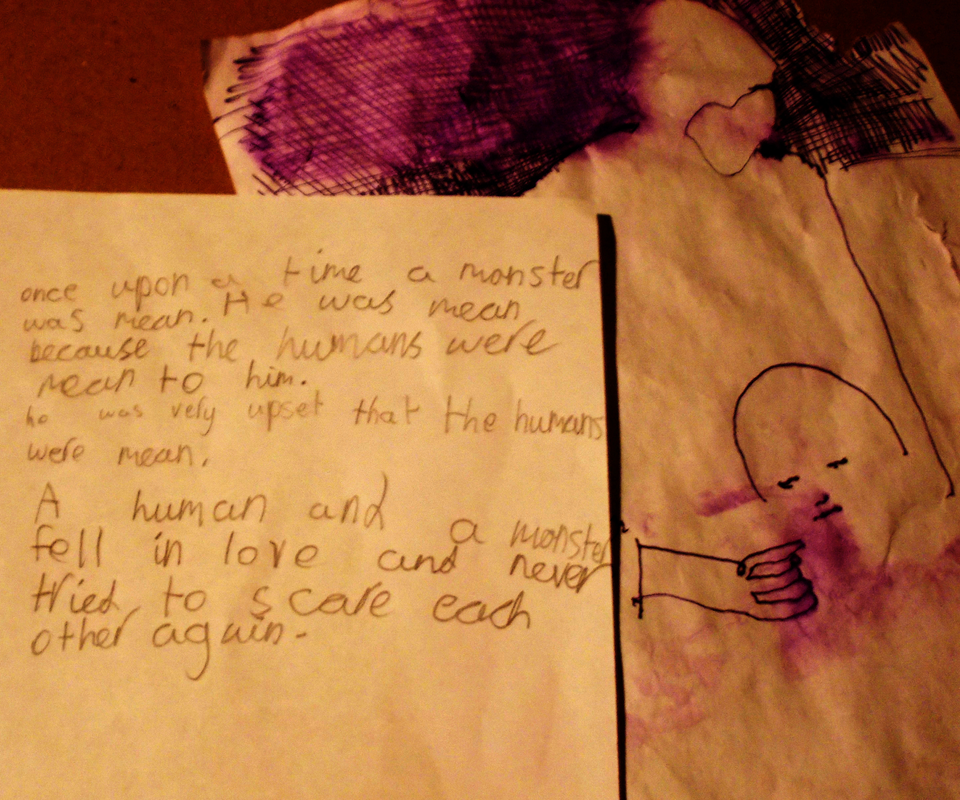 once upon a time a monster
was mean. He was mean
because the humans were
mean to him.
he was very upset that the humans
were mean.
A human and a monster
fell in love and never
tried to scare each
other again.